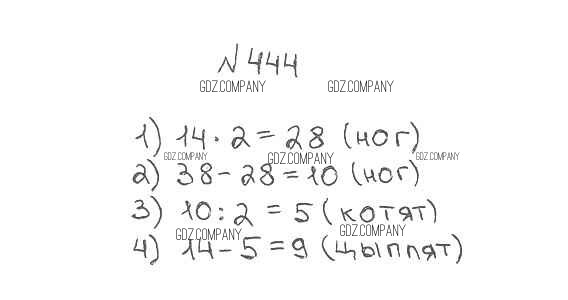 N 444
GDZ.COMPANY GDZ.COMPANY
1) 14 · 2 = 28 (ног)
GDZ.COMPANY GDZ.COMPANY GDZ.COMPANY
2) 38 - 28 = 10 (ног)
3) 10 : 2 = 5 (котят)
GDZ.COMPANY GDZ.COMPANY
4) 14 - 5 = 9 (цыплят)